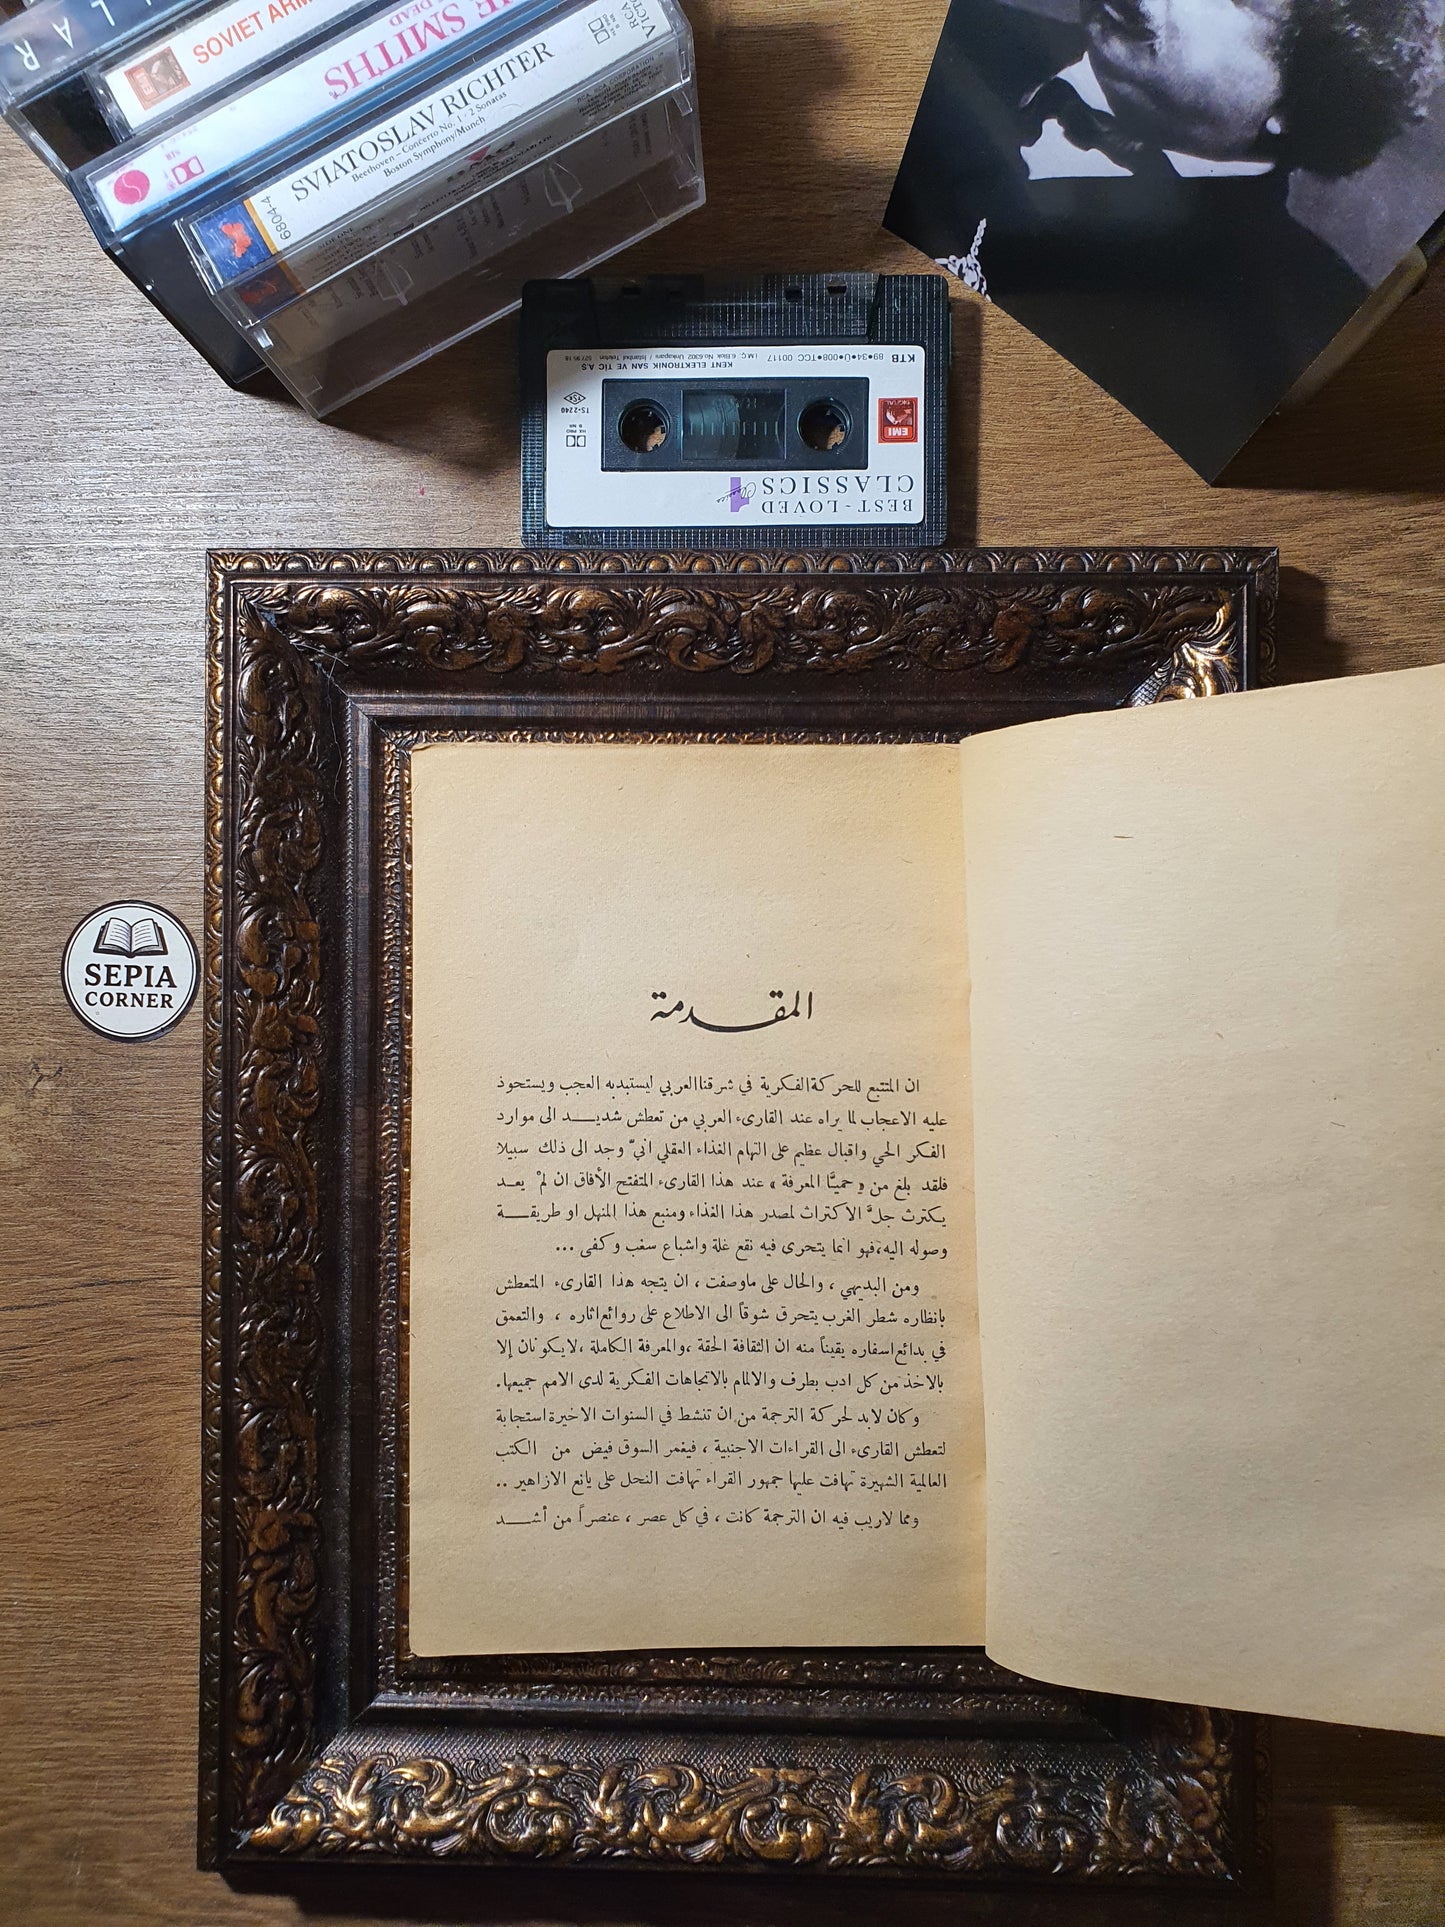 SOVIET ARM
THE SMITHS
DEAD
SVIATOSLAV RICHTER
Beethoven - Concerto No. 1 - 2 Sonatas
Boston Symphony/Munch
6804-4
RCA
VICTOR
BEST - LOVED
CLASSICS 4
EMI
DIGITAL
HX PRO
B NR
TS-2240
KENT ELEKTRONİK SAN VE TİC A.Ş
İ M.Ç. 6.Blok No.6302 Unkapanı / İstanbul Telefon 527 95 18
KTB 89•34•Ü•008•TCC 00117
SEPIA
CORNER
المقدمة
ان المتتبع للحركة الفكرية في شرقنا العربي ليستبد به العجب ويستحوذ
عليه الاعجاب لما يراه عند القارىء العربي من تعطش شديد الى موارد
الفكر الحي واقبال عظيم على التهام الغذاء العقلي انىّ وجد الى ذلك سبيلا
فلقد بلغ من « حميَّا المعرفة » عند هذا القارىء المتفتح الأفاق ان لمْ يعد
يكترث جلَّ الاكتراث لمصدر هذا الغذاء ومنبع هذا المنهل او طريقة
وصوله اليه، فهو انما يتحرى فيه نقع غلة واشباع سغب وكفى ...
ومن البديهي ، والحال على ماوصفت ، ان يتجه هذا القارىء المتعطش
بانظاره شطر الغرب يتحرق شوقاً الى الاطلاع على روائع اثاره ، والتعمق
في بدائع اسفاره يقيناً منه ان الثقافة الحقة ،والمعرفة الكاملة ،لايكونان إلا
بالاخذ من كل ادب بطرف والالمام بالاتجاهات الفكرية لدى الامم جميعها.
وكان لابد لحركة الترجمة من ان تنشط في السنوات الاخيرة استجابة
لتعطش القارىء الى القراءات الاجنبية ، فيغمر السوق فيض من الكتب
العالمية الشهيرة تهافت عليها جمهور القراء تهافت النحل على يانع الازاهير ..
ومما لاريب فيه ان الترجمة كانت ، في كل عصر ، عنصراً من أشد